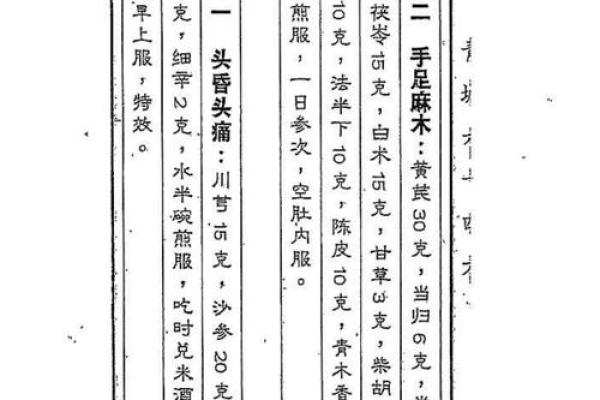 二 手足麻木：黄芪30克，当归6克，
茯苓15克，白术15克，甘草3克，柴胡
10克，法半下10克，陈皮10克，青木香
煎服，一日参次，空肚内服。
一 头昏头痛：川芎15克，沙参20克
克，细辛2克，水半碗煎服，吃时兑米酒
早上服，特效。